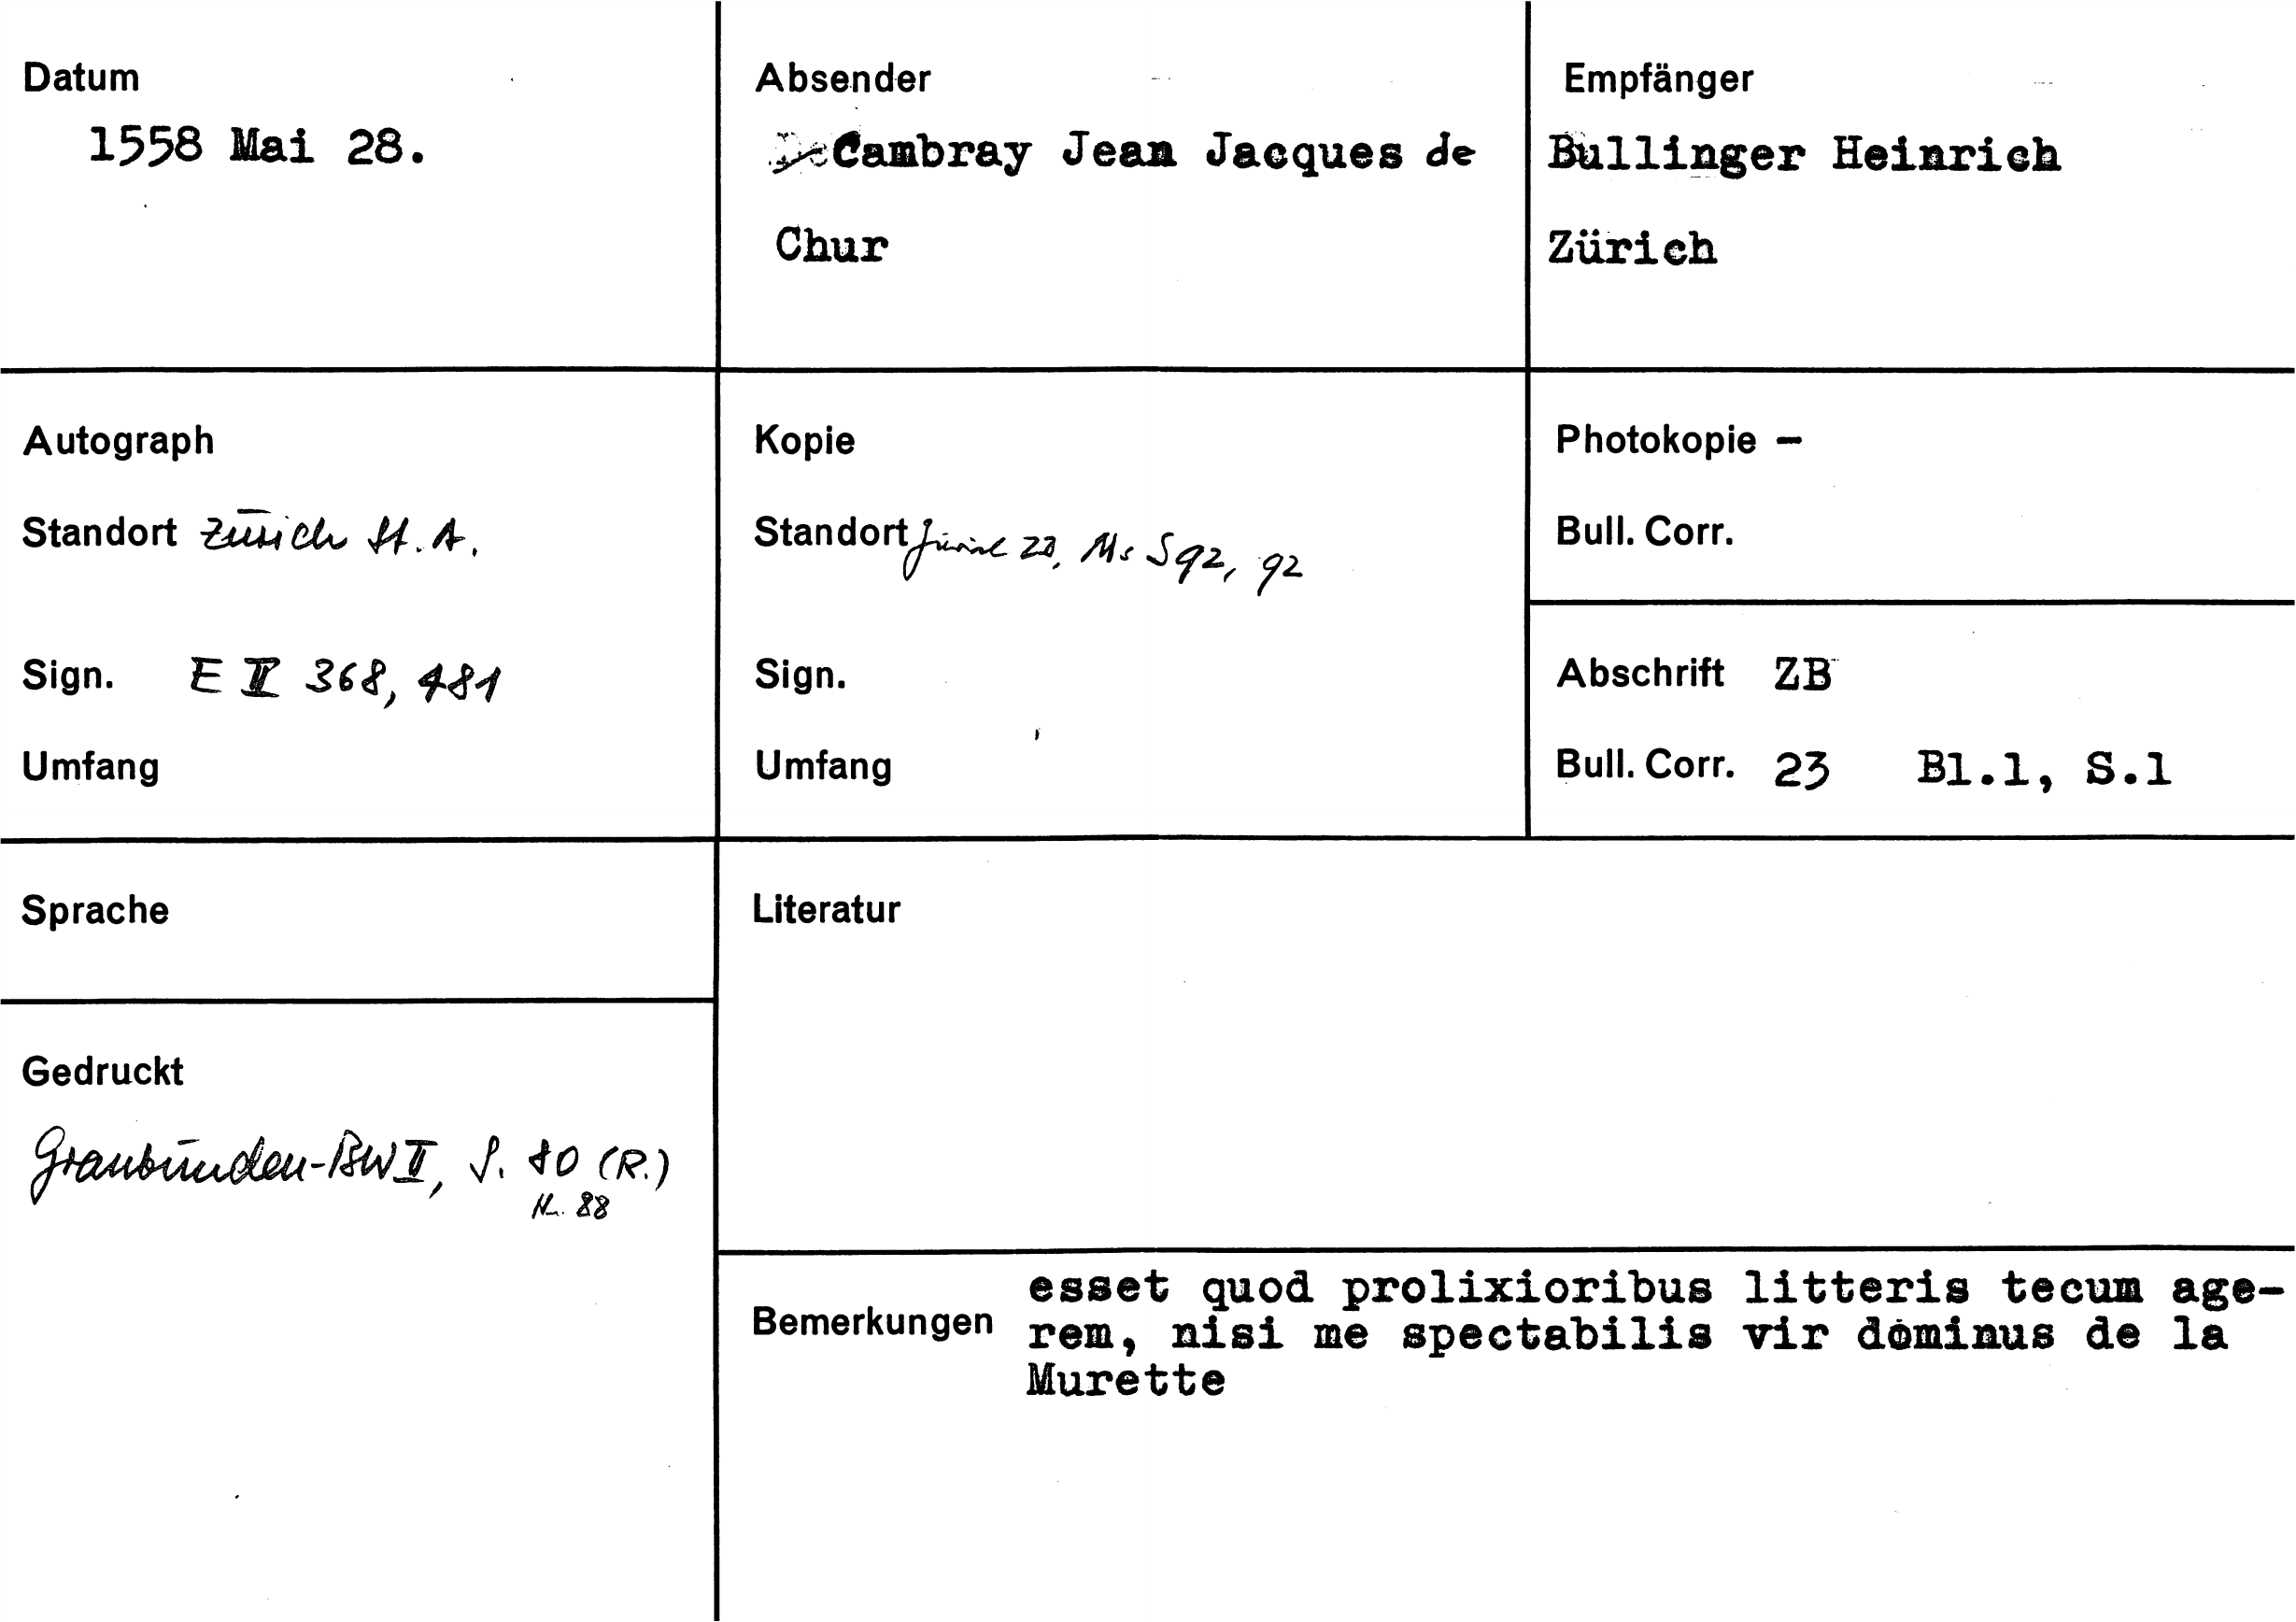 Datum
1558 Mai 28.
Absender
Cambray Jean Jacques de
Chur
Empfänger
Bullinger Heinrich
Zürich
Autograph
Standort Zürich St. A.
Sign. E II 368, 481
Umfang
Kopie
Standort Zürich ZB, Ms S 92, 92
Sign.
Umfang
Photokopie –
Bull. Corr.
Abschrift ZB
Bull. Corr. 23 Bl.1, S.1
Sprache
Literatur
Gedruckt
Graubünden-BW II, S. 80 (R.)
Nr. 88
Bemerkungen
esset quod prolixioribus litteris tecum age-
rem, nisi me spectabilis vir dominus de la
Murette